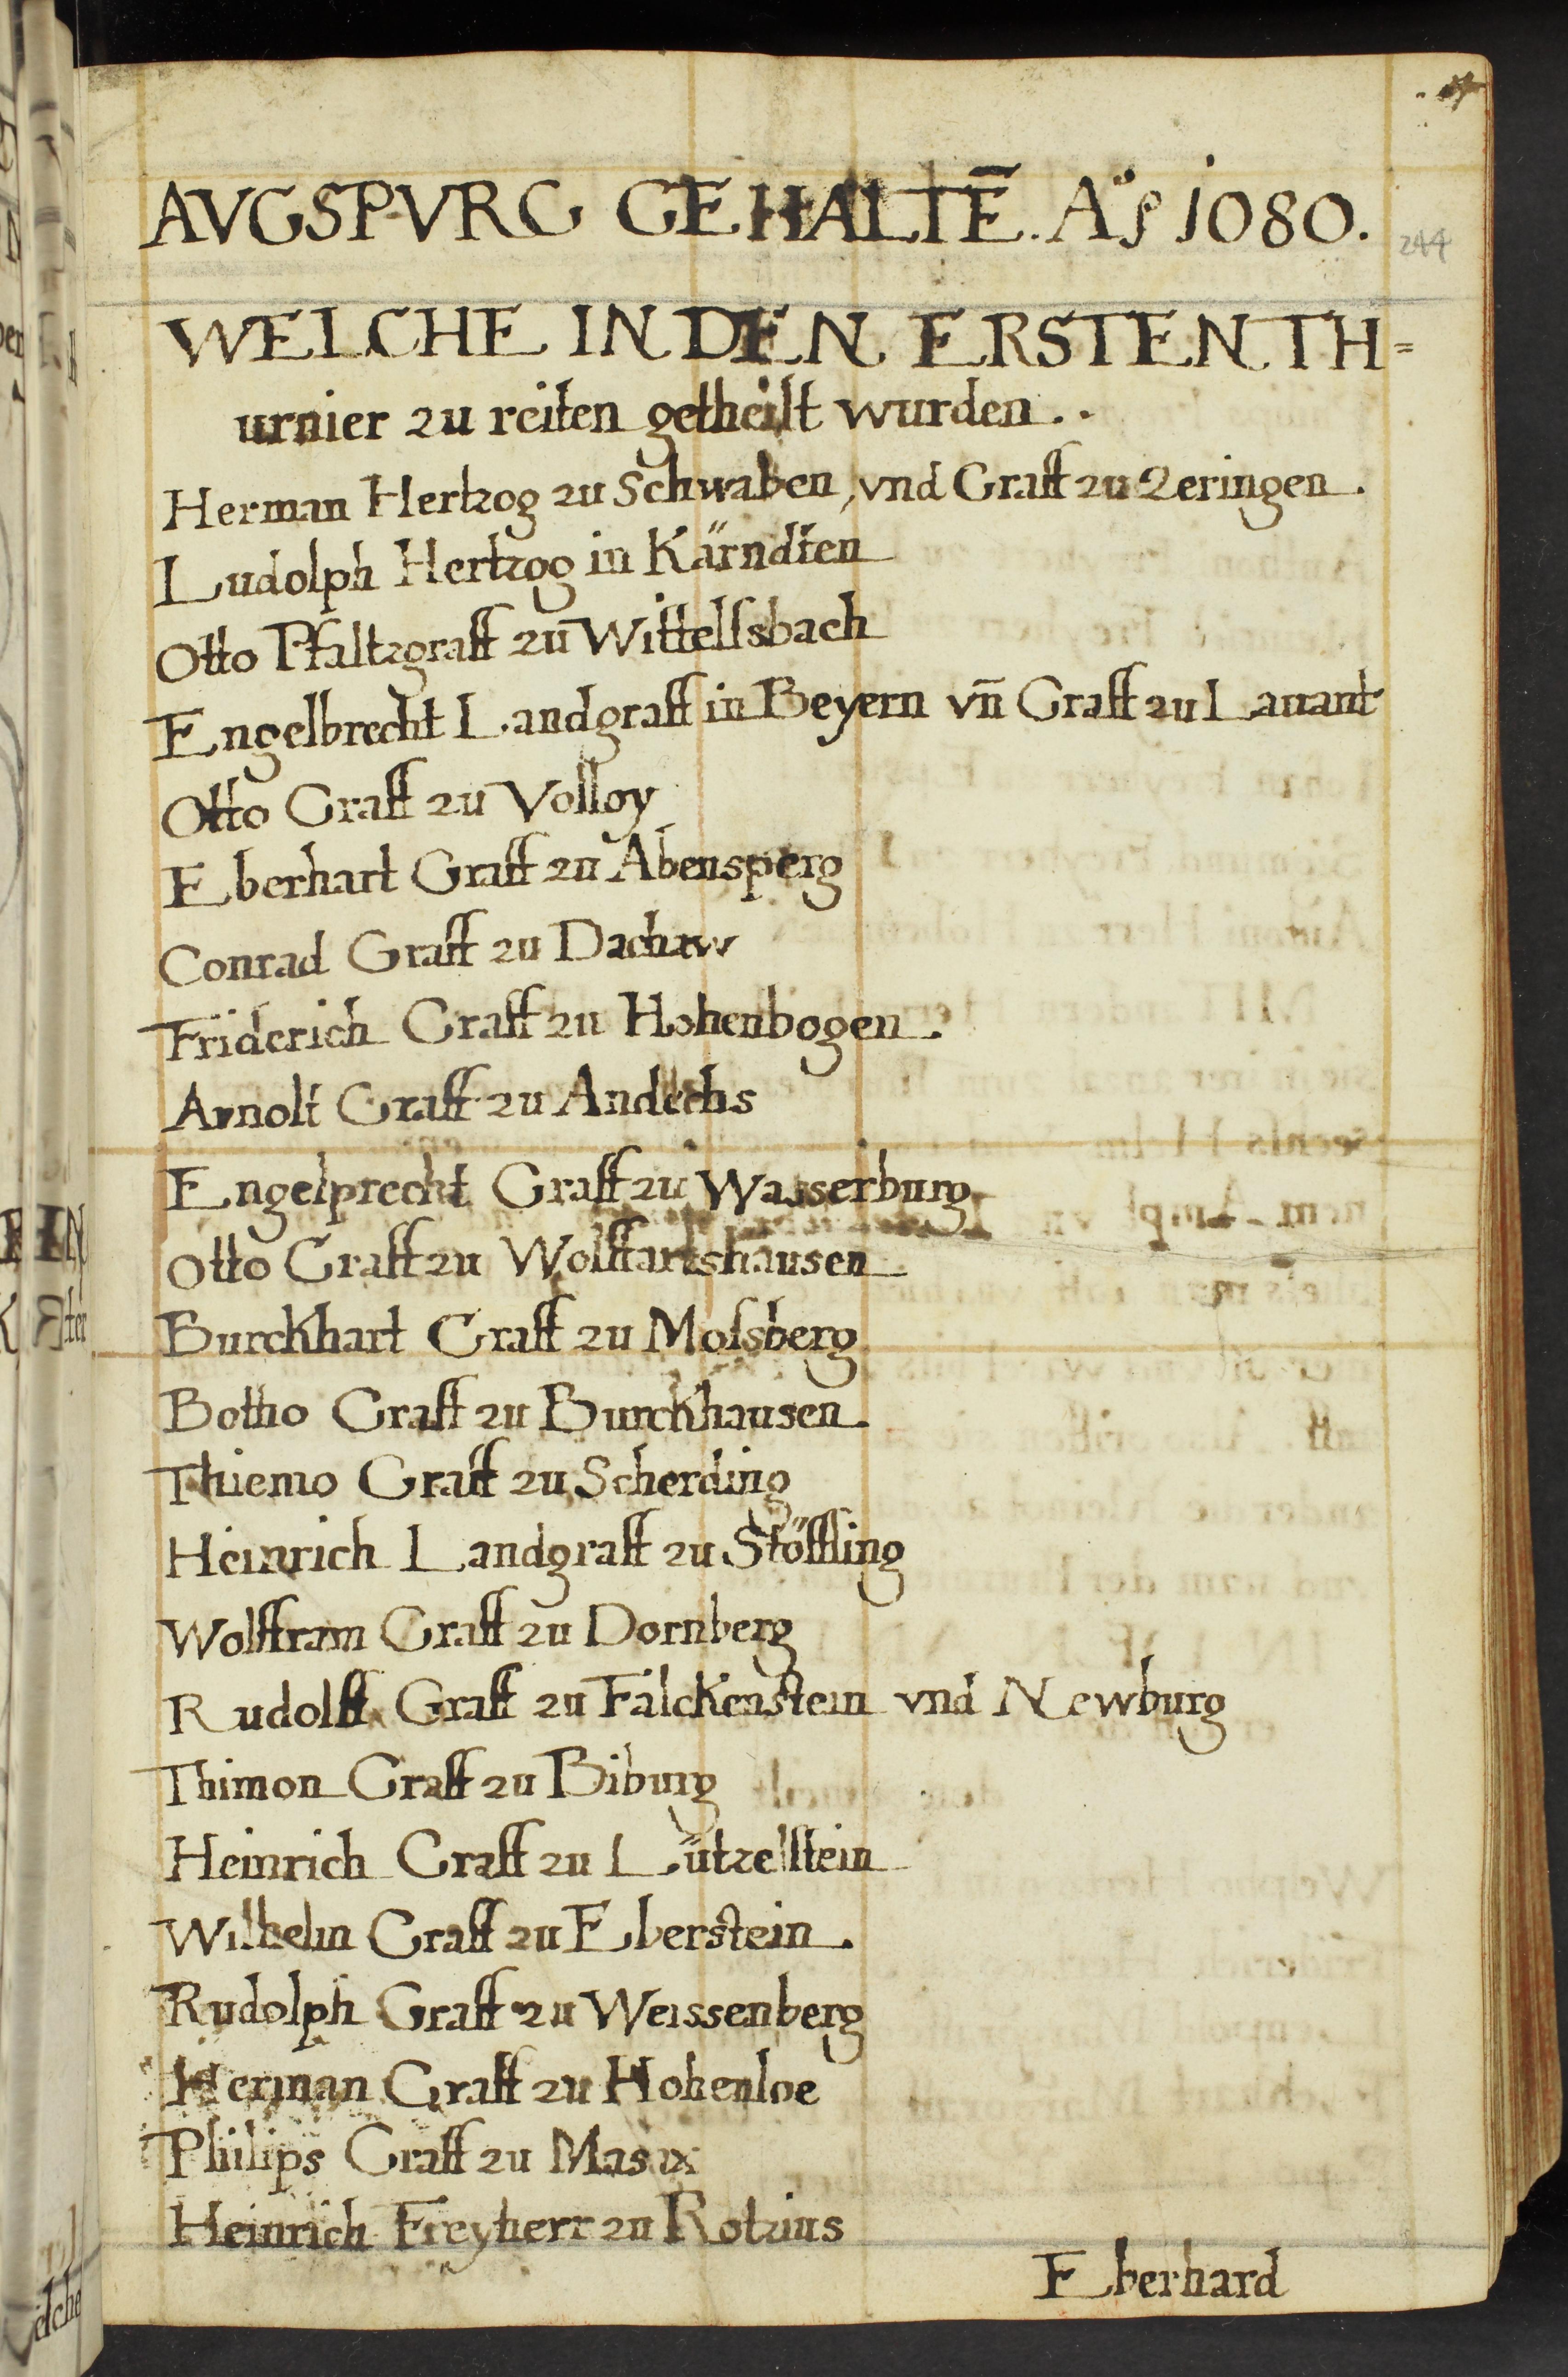 AVGSPVRG GEHALTẼ. Aº 1080.
244
WELCHE IN DEN ERSTEN TH=
urnier zu reiten getheilt wurden..
Herman Hertzog zu Schwaben, vnd Graff zu Zeringen.
Ludolph Hertzog in Kärndten
Otto Pfaltzgraff zu Wittelſsbach
Engelbrecht Landgraff in Beyern vn̄ Graff zu Lauant
Otto Graff zu Volloy
Eberhart Graff zu Abensperg
Conrad Graff zu Dachaw
Friderich Graff zu Hohenbogen.
Arnolt Graff zu Andechs
Engelprecht Graff zu Wasserburg
Otto Graff zu Wolffartshausen
Burckhart Graff zu Moſsberg
Botho Graff zu Burckhausen.
Thiemo Graff zu Scherding
Heinrich Landgraff zu Stöffling
Wolffram Graff zu Dornberg
Rudolff Graff zu Falckenstein vnd Newburg
Thimon Graff zu Biburg
Heinrich Graff zu Lützelstein
Wilhelm Graff zu Eberstein.
Rudolph Graff zu Weissenberg
Herman Graff zu Hohenloe
Philips Graff zu Masax
Heinrich Freyherr zu Rotzius
Eberhard